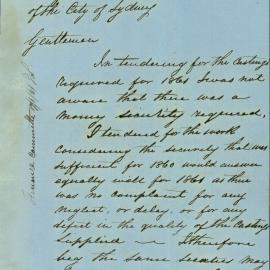 of the City of Sydney
Gentlemen
In tendering for the Castings
required for 1861 I was not
aware that there was a
money security required.
I tendered for the work
considering the security that was
sufficient for 1860 would answer
equally well for 1861 as there
was no complaint for any
neglect, or delay, or for any
defect in the quality of the Castings
Supplied — I therefore
beg the same securities may
Finance Committee